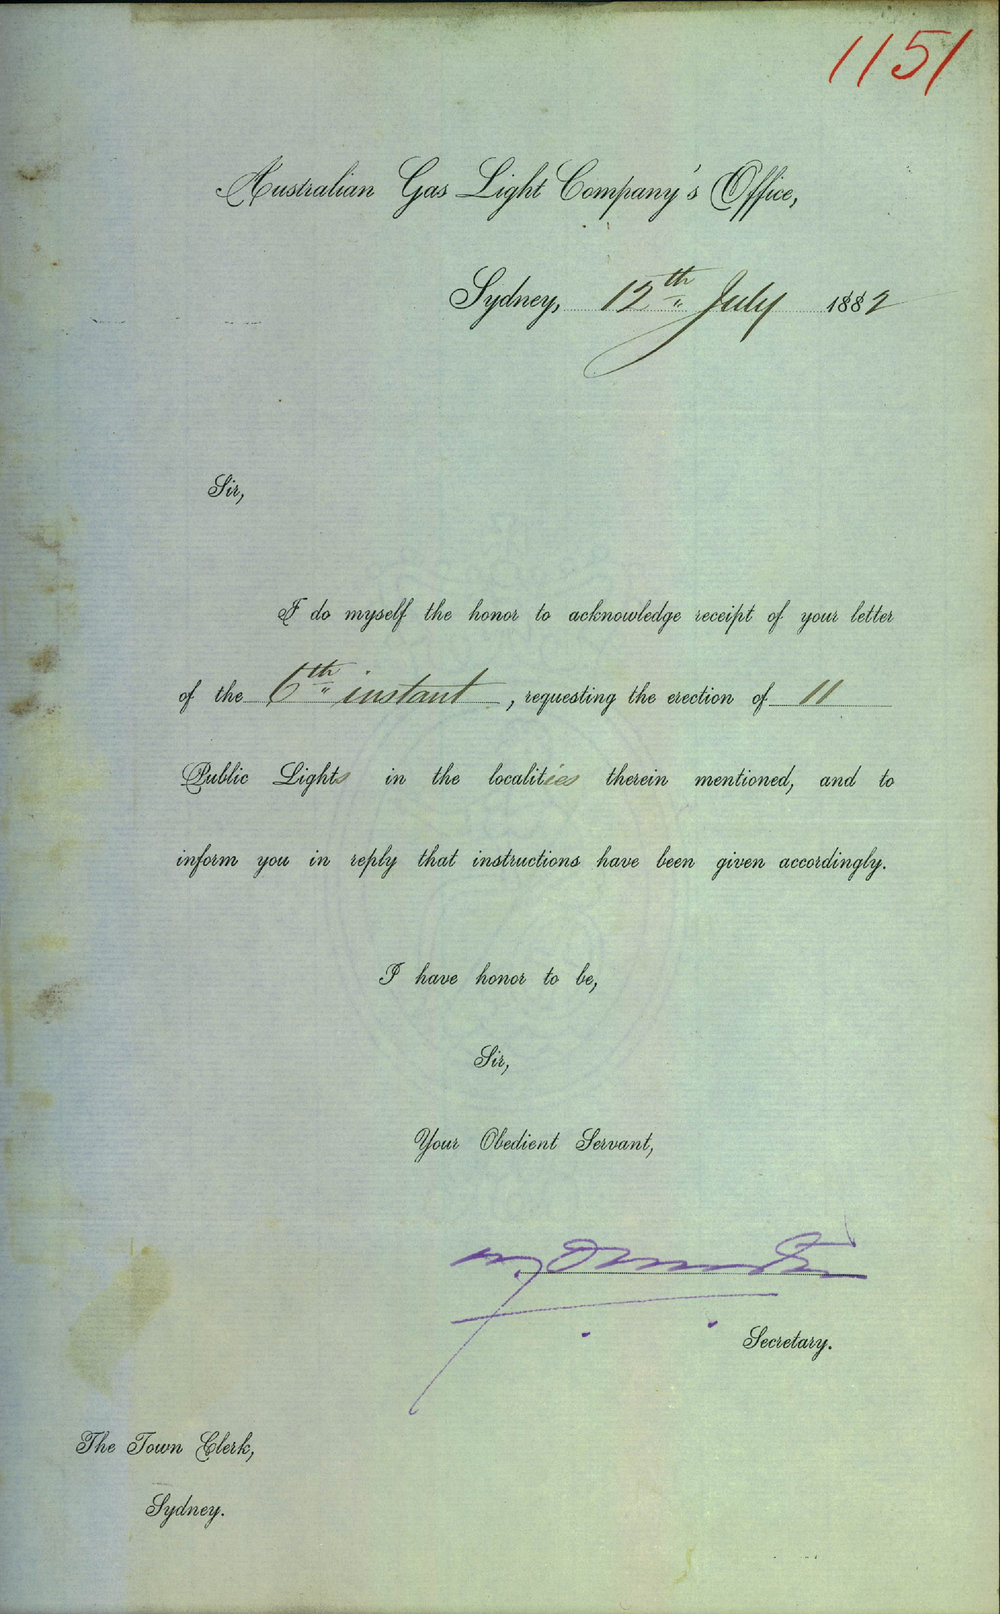 1151
Australian Gas Light Company's Office,
Sydney, 12th July 1882
Sir,
I do myself the honor to acknowledge receipt of your letter
of the 6th instant, requesting the erection of 11
Public Lights in the localities therein mentioned, and to
inform you in reply that instructions have been given accordingly.
I have honor to be,
Sir,
Your Obedient Servant,
Secretary.
The Town Clerk,
Sydney.